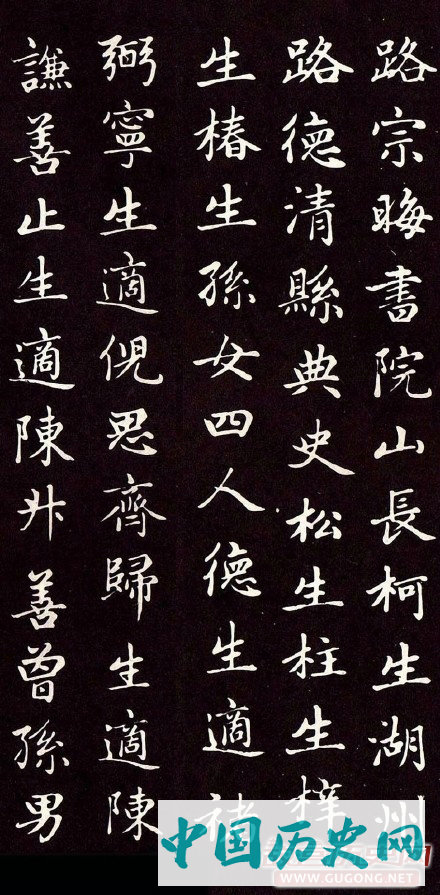 路宗晦書院山長柯生湖州
路德清縣典史松生柱生梓
生椿生孫女四人德生適褚
弼寧生適倪思齊歸生適陳
謙善止生適陳廾善曾孫男
中国历史网
WWW.GUGONG.NET